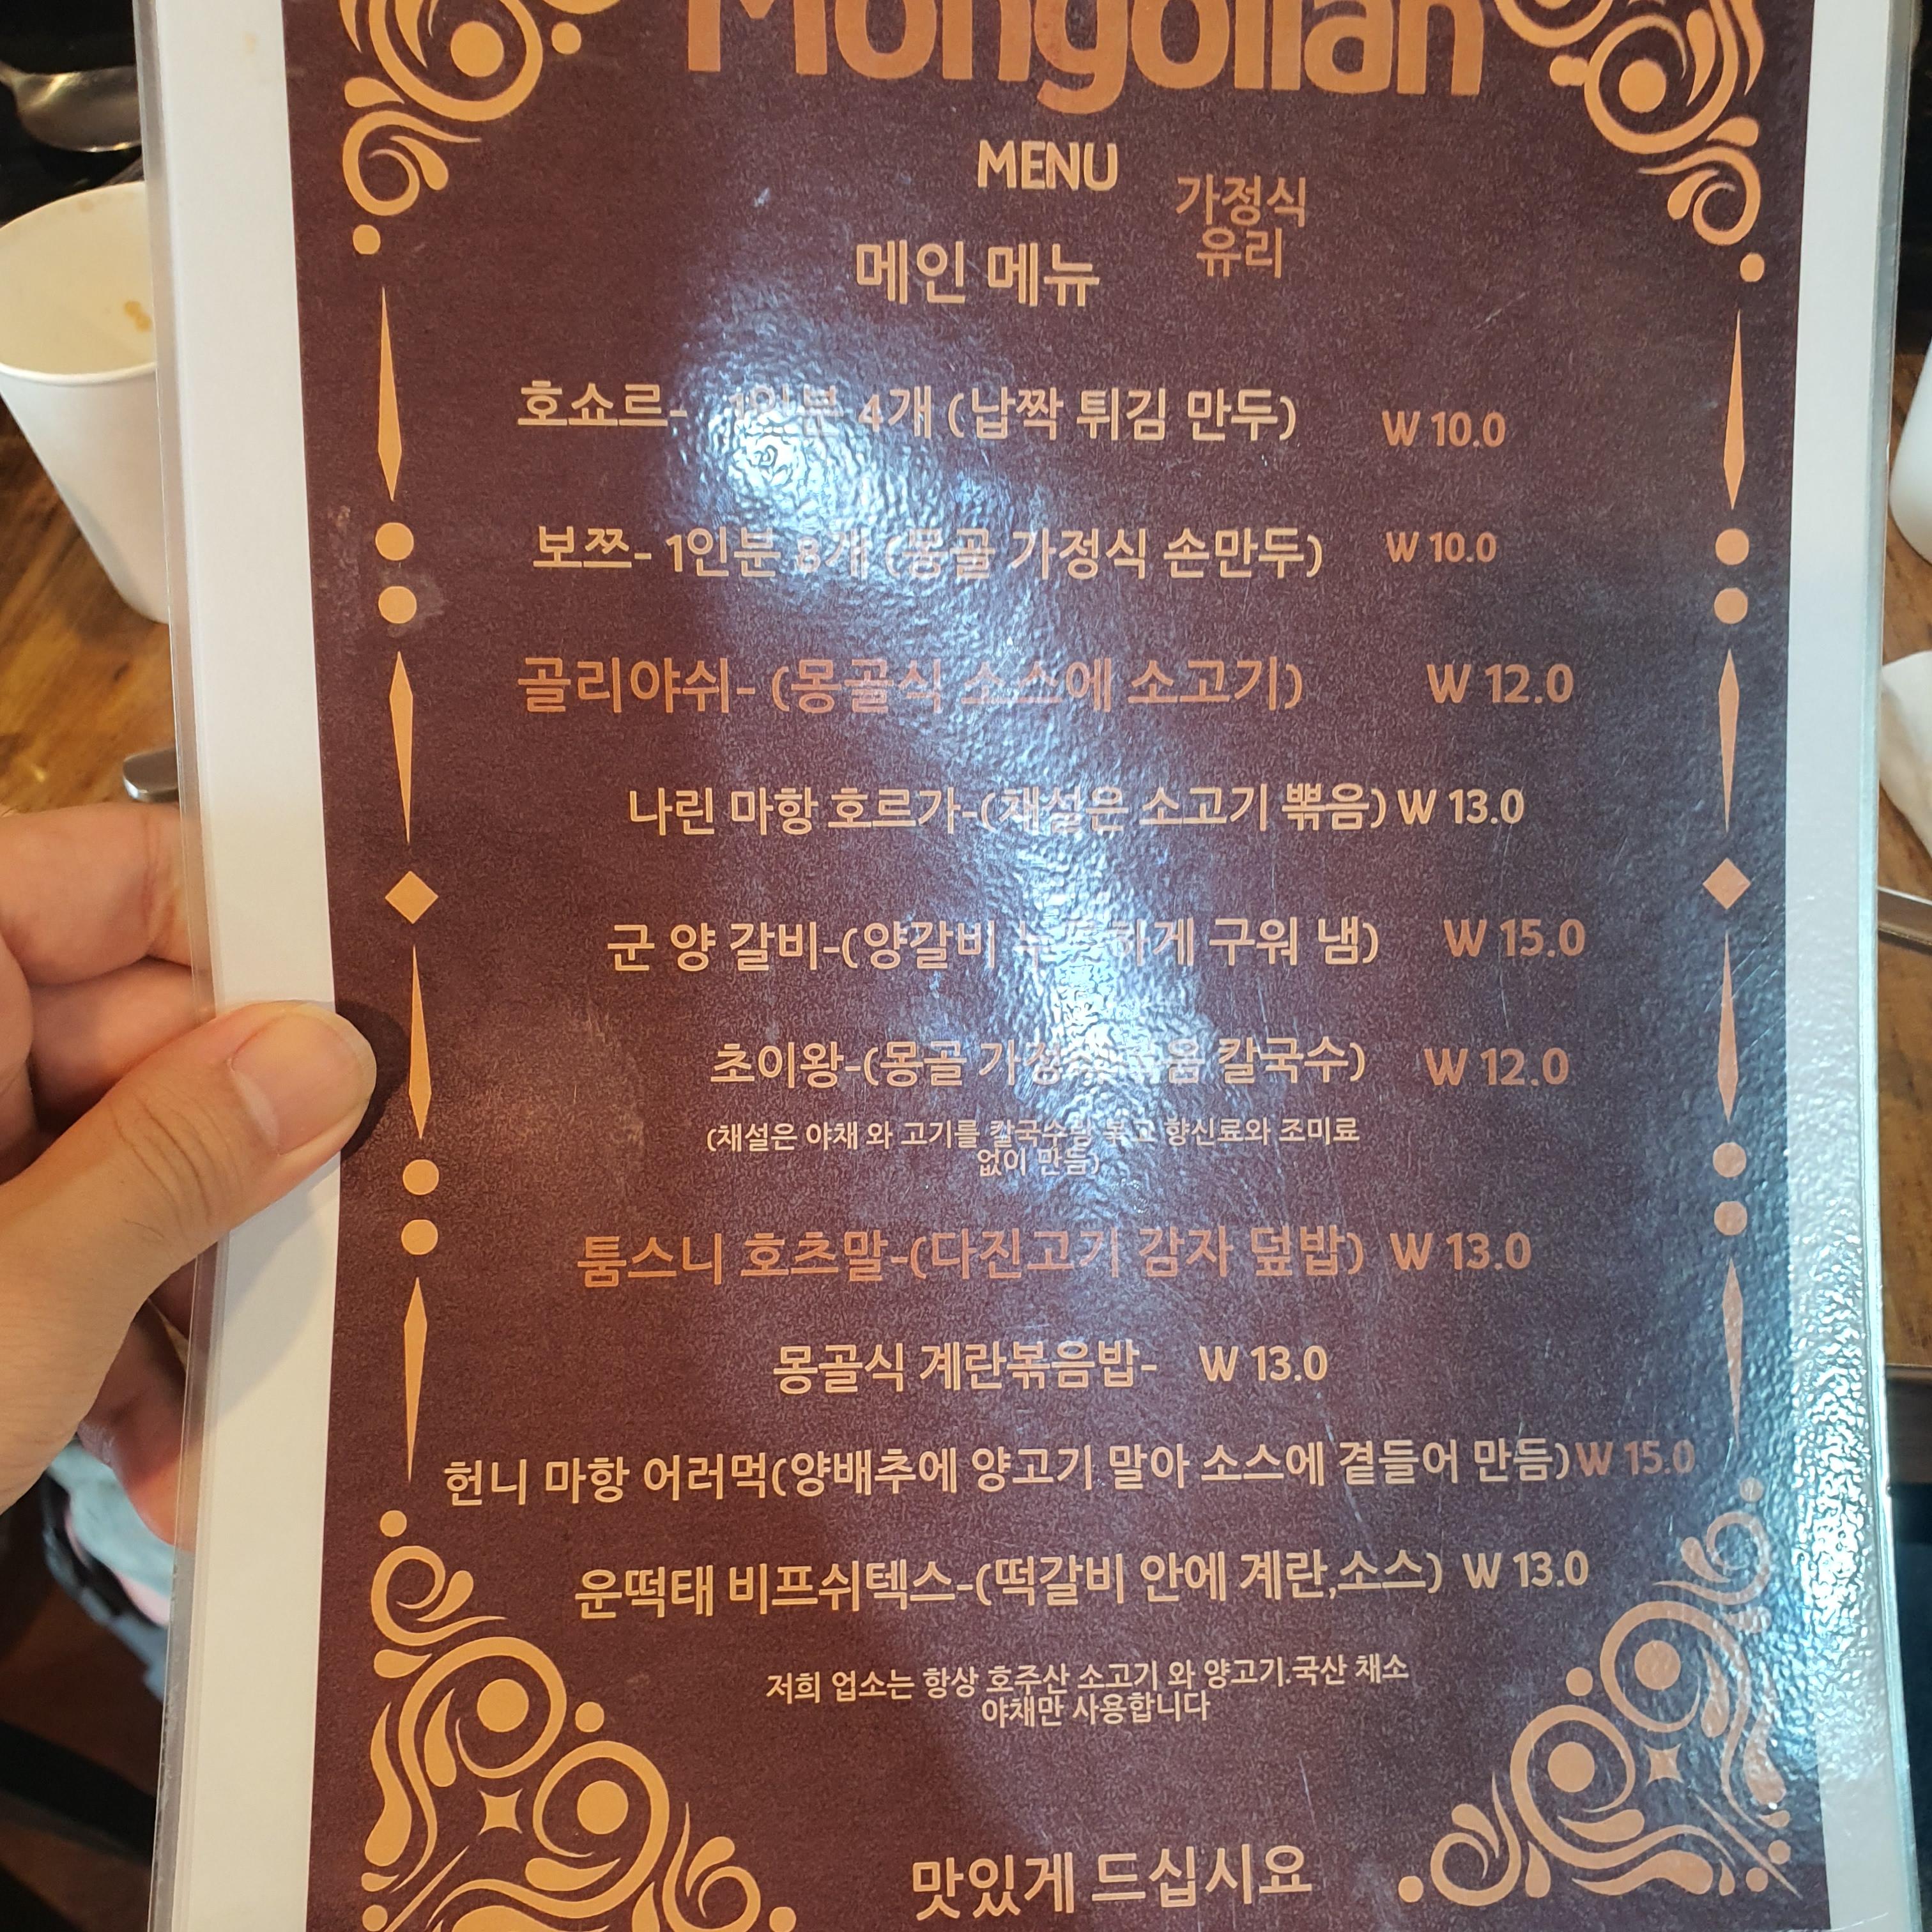 Mongolian
MENU
가정식
유리
메인 메뉴
호쇼르- 1인분 4개 (납짝 튀김 만두) W 10.0
보쯔- 1인분 8개 (몽골 가정식 손만두) W 10.0
골리야쉬- (몽골식 소스에 소고기) W 12.0
나린 마항 호르가-(채설은 소고기 뽂음) W 13.0
군 양 갈비-(양갈비 구워 냄) W 15.0
초이왕-(몽골 가정식 볶음 칼국수) W 12.0
(채설은 야채 와 고기를 칼국수랑 볶고 향신료와 조미료
없이 만듬)
툼스니 호츠말-(다진고기 감자 덮밥) W 13.0
몽골식 계란볶음밥- W 13.0
헌니 마항 어러먹(양배추에 양고기 말아 소스에 곁들어 만듬) W 15.0
운떡태 비프쉬텍스-(떡갈비 안에 계란,소스) W 13.0
저희 업소는 항상 호주산 소고기 와 양고기.국산 채소
야채만 사용합니다
맛있게 드십시요